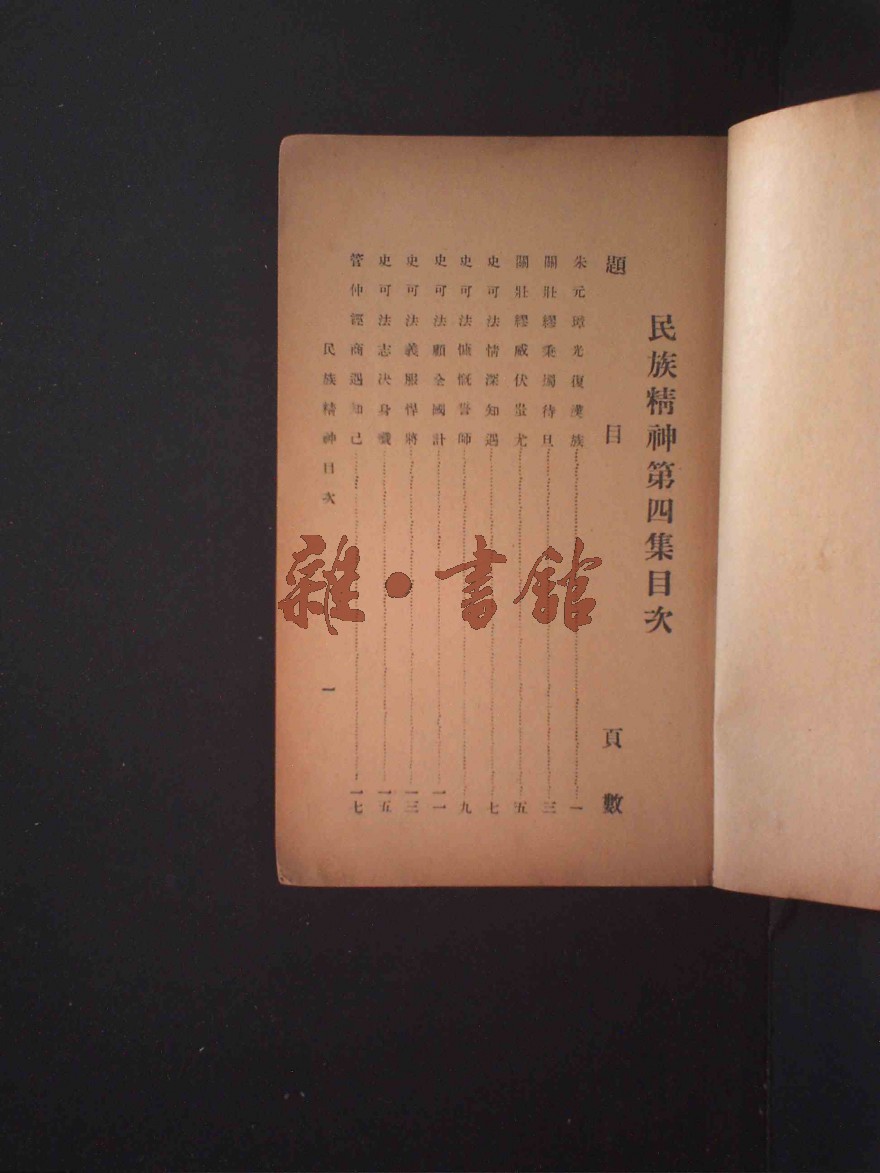 民族精神第四集目次
題目 頁數
朱元璋光復漢族 一
關壯繆秉燭待旦 三
關壯繆威伏蚩尤 五
史可法情深知遇 七
史可法慷慨誓師 九
史可法顧全國計 一一
史可法義服悍將 一三
史可法志决身殲 一五
管仲經商遇知己 一七
民族精神目次 一
雜·書館